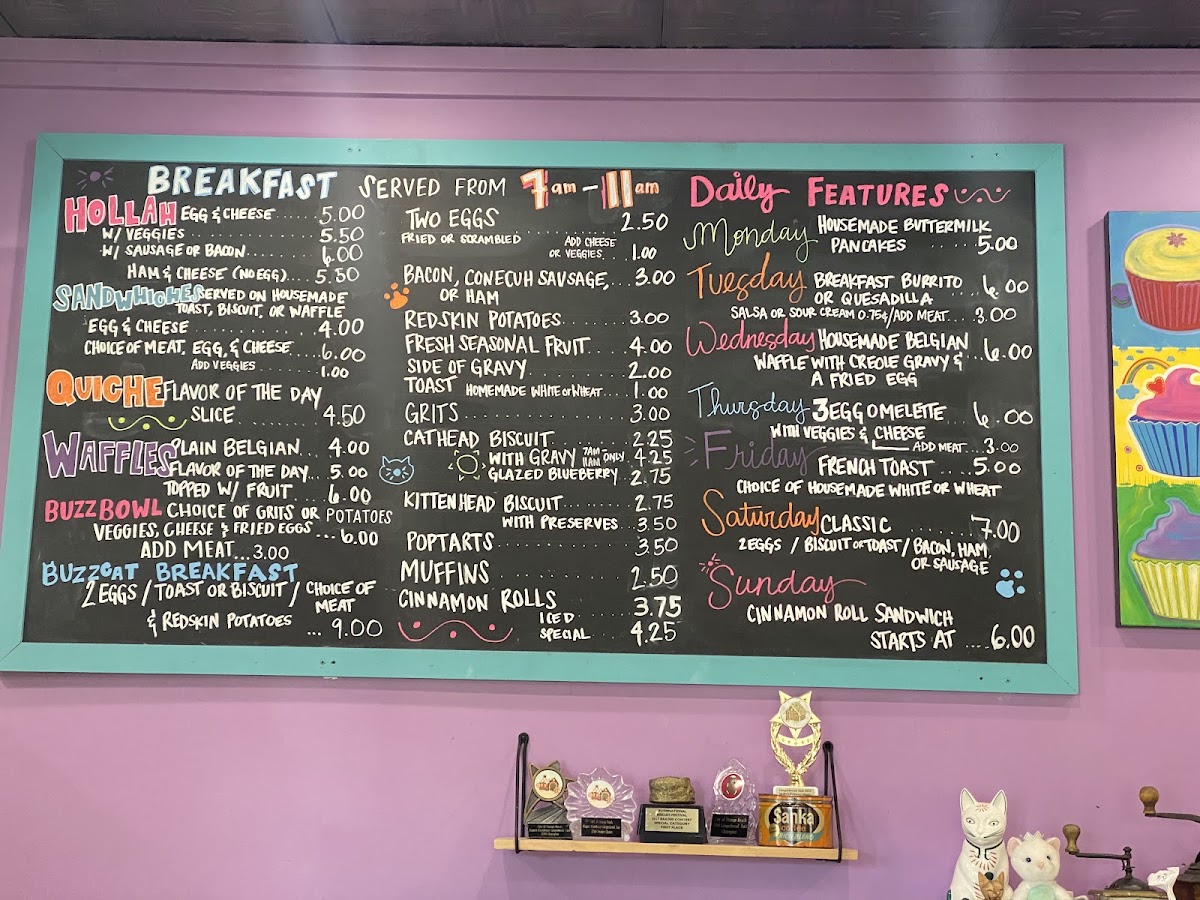 BREAKFAST SERVED FROM 7am - 11am
HOLLAH EGG & CHEESE ...... 5.00
W/ VEGGIES ...... 5.50
W/ SAUSAGE OR BACON ...... 6.00
HAM & CHEESE (NO EGG) ... 5.50
SANDWHICHES SERVED ON HOUSEMADE
TOAST, BISCUIT, OR WAFFLE
EGG & CHEESE ...... 4.00
CHOICE OF MEAT, EGG, & CHEESE ... 6.00
ADD VEGGIES ...... 1.00
QUICHE FLAVOR OF THE DAY
SLICE ...... 4.50
WAFFLES PLAIN BELGIAN ... 4.00
FLAVOR OF THE DAY ... 5.00
TOPPED W/ FRUIT ... 6.00
BUZZBOWL CHOICE OF GRITS OR POTATOES
VEGGIES, CHEESE & FRIED EGGS ... 6.00
ADD MEAT...3.00
BUZZCAT BREAKFAST
2 EGGS / TOAST OR BISCUIT / CHOICE OF
MEAT
& REDSKIN POTATOES ... 9.00
TWO EGGS 2.50
FRIED OR SCRAMBLED ADD CHEESE
OR VEGGIES. 1.00
BACON, CONECUH SAUSAGE, ... 3.00
OR HAM
REDSKIN POTATOES ...... 3.00
FRESH SEASONAL FRUIT ... 4.00
SIDE OF GRAVY ...... 2.00
TOAST HOMEMADE WHITE OR WHEAT ... 1.00
GRITS ...... 3.00
CATHEAD BISCUIT ...... 2.25
WITH GRAVY 7AM 11AM ONLY. 4.25
GLAZED BLUEBERRY .. 2.75
KITTENHEAD BISCUIT ...... 2.75
WITH PRESERVES ... 3.50
POPTARTS ...... 3.50
MUFFINS ...... 2.50
CINNAMON ROLLS
ICED ...... 3.75
SPECIAL ...... 4.25
Daily FEATURES
Monday HOUSEMADE BUTTERMILK
PANCAKES ...... 5.00
Tuesday BREAKFAST BURRITO
OR QUESADILLA ... 6.00
SALSA OR SOUR CREAM 0.75¢/ADD MEAT ... 3.00
Wednesday HOUSEMADE BELGIAN
WAFFLE WITH CREOLE GRAVY & ... 6.00
A FRIED EGG
Thursday 3 EGG OMELETE 6.00
WITH VEGGIES & CHEESE
ADD MEAT ... 3.00
Friday FRENCH TOAST ... 5.00
CHOICE OF HOUSEMADE WHITE OR WHEAT
Saturday CLASSIC ...... 7.00
2EGGS / BISCUIT OR TOAST / BACON, HAM,
OR SAUSAGE
Sunday
CINNAMON ROLL SANDWICH
STARTS AT .... 6.00
Sanka